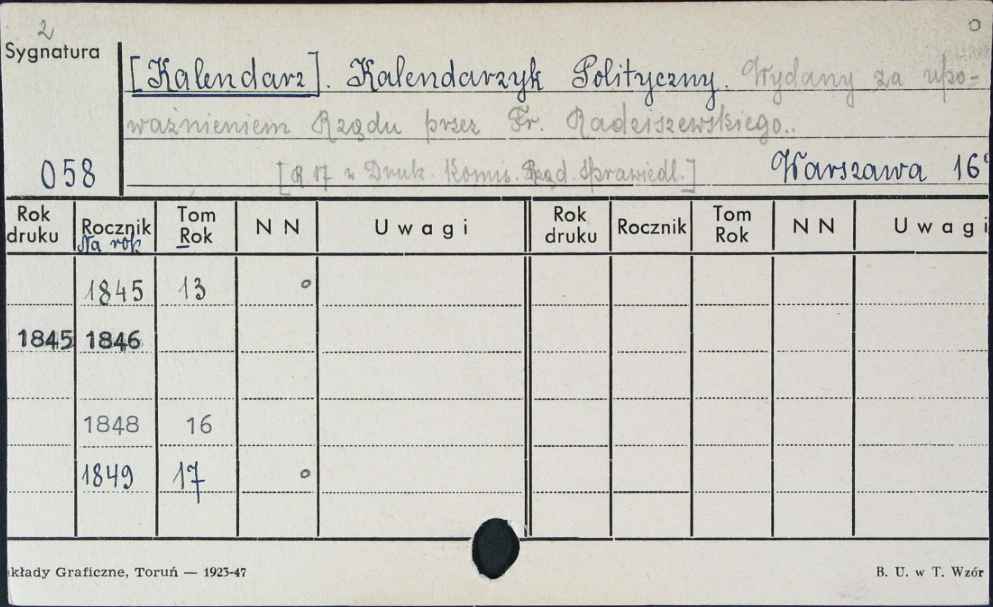 2
Sygnatura
[Kalendarz]. Kalendarzyk Polityczny. Wydany za upo-
ważnieniem Rządu przez Fr. Radziszewskiego..
058 [R 17 w Druk. Komis. Rząd. Sprawiedl.] Warszawa 16°
Rok druku Rocznik Na rok Tom Rok N N Uwagi Rok druku Rocznik Tom Rok N N Uwagi
1845 13 o
1845 1846
1848 16
1849 17 o
kłady Graficzne, Toruń — 1923-47 B. U. w T. Wzór